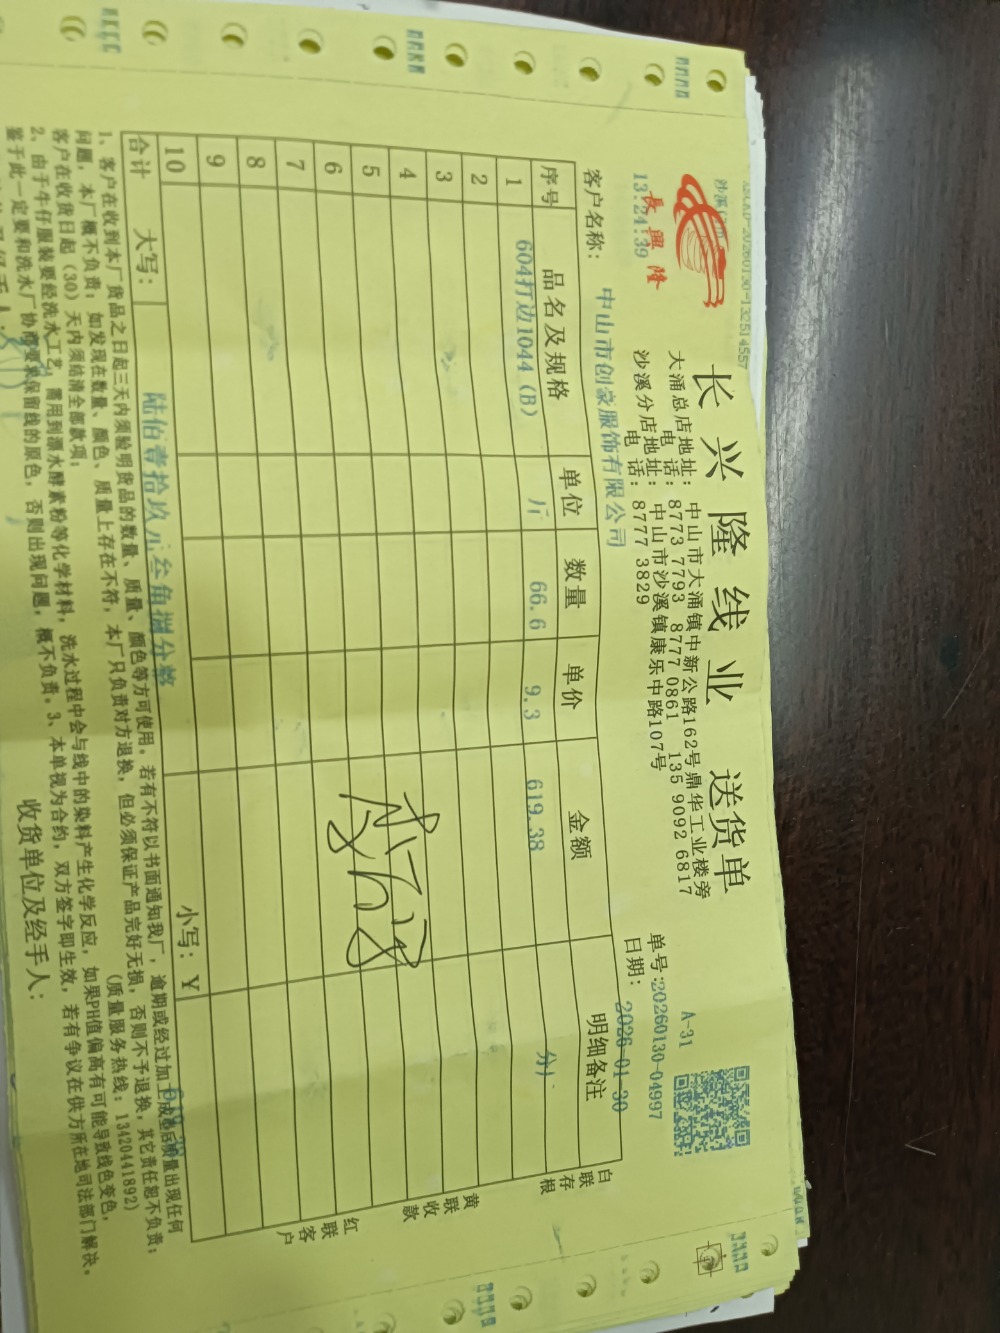 长兴隆线业 送货单
長興隆
13:24:39
大涌总店地址: 中山市大涌镇中新公路162号鼎华工业楼旁
电 话: 8773 7793 8777 0861 135 9092 6817
沙溪分店地址: 中山市沙溪镇康乐中路107号
电 话: 8777 3829
A-31
单号:20260130-04997
客户名称: 中山市创豪服饰有限公司
日期: 2026-01-30
序号 品名及规格 单位 数量 单价 金额 明细备注
1 604打边1044 (B) 斤 66.6 9.3 619.38 分)
2
3
4
5
6
7
8
9
10
合计 大写: 陆佰壹拾玖元叁角捌分整 小写: Y
白联存根
黄联收款
红联客户
1、客户在收到本厂货品之日起三天内须验明货品的数量、质量、颜色等方可使用。若有不符以书面通知我厂,逾期或经过加工成后质量出现任何
问题,本厂概不负责;如发现在数量、颜色、质量上存在不符,本厂只负责对方退换,但必须保证产品完好无损,否则不予退换,其它责任恕不负责;
客户在收货日起(30)天内须结清全部款项; (质量服务热线:13420441892)
2、由于牛仔服装要经洗水工艺,需用到漂水酵素粉等化学材料,洗水过程中会与线中的染料产生化学反应,如果PH值偏高有可能导致线色变色,
鉴于此一定要和洗水厂协商要求保留线的原色,否则出现问题,概不负责。3、本单视为合约,双方签字即生效,若有争议在供方所在地司法部门解决。
收货单位及经手人: